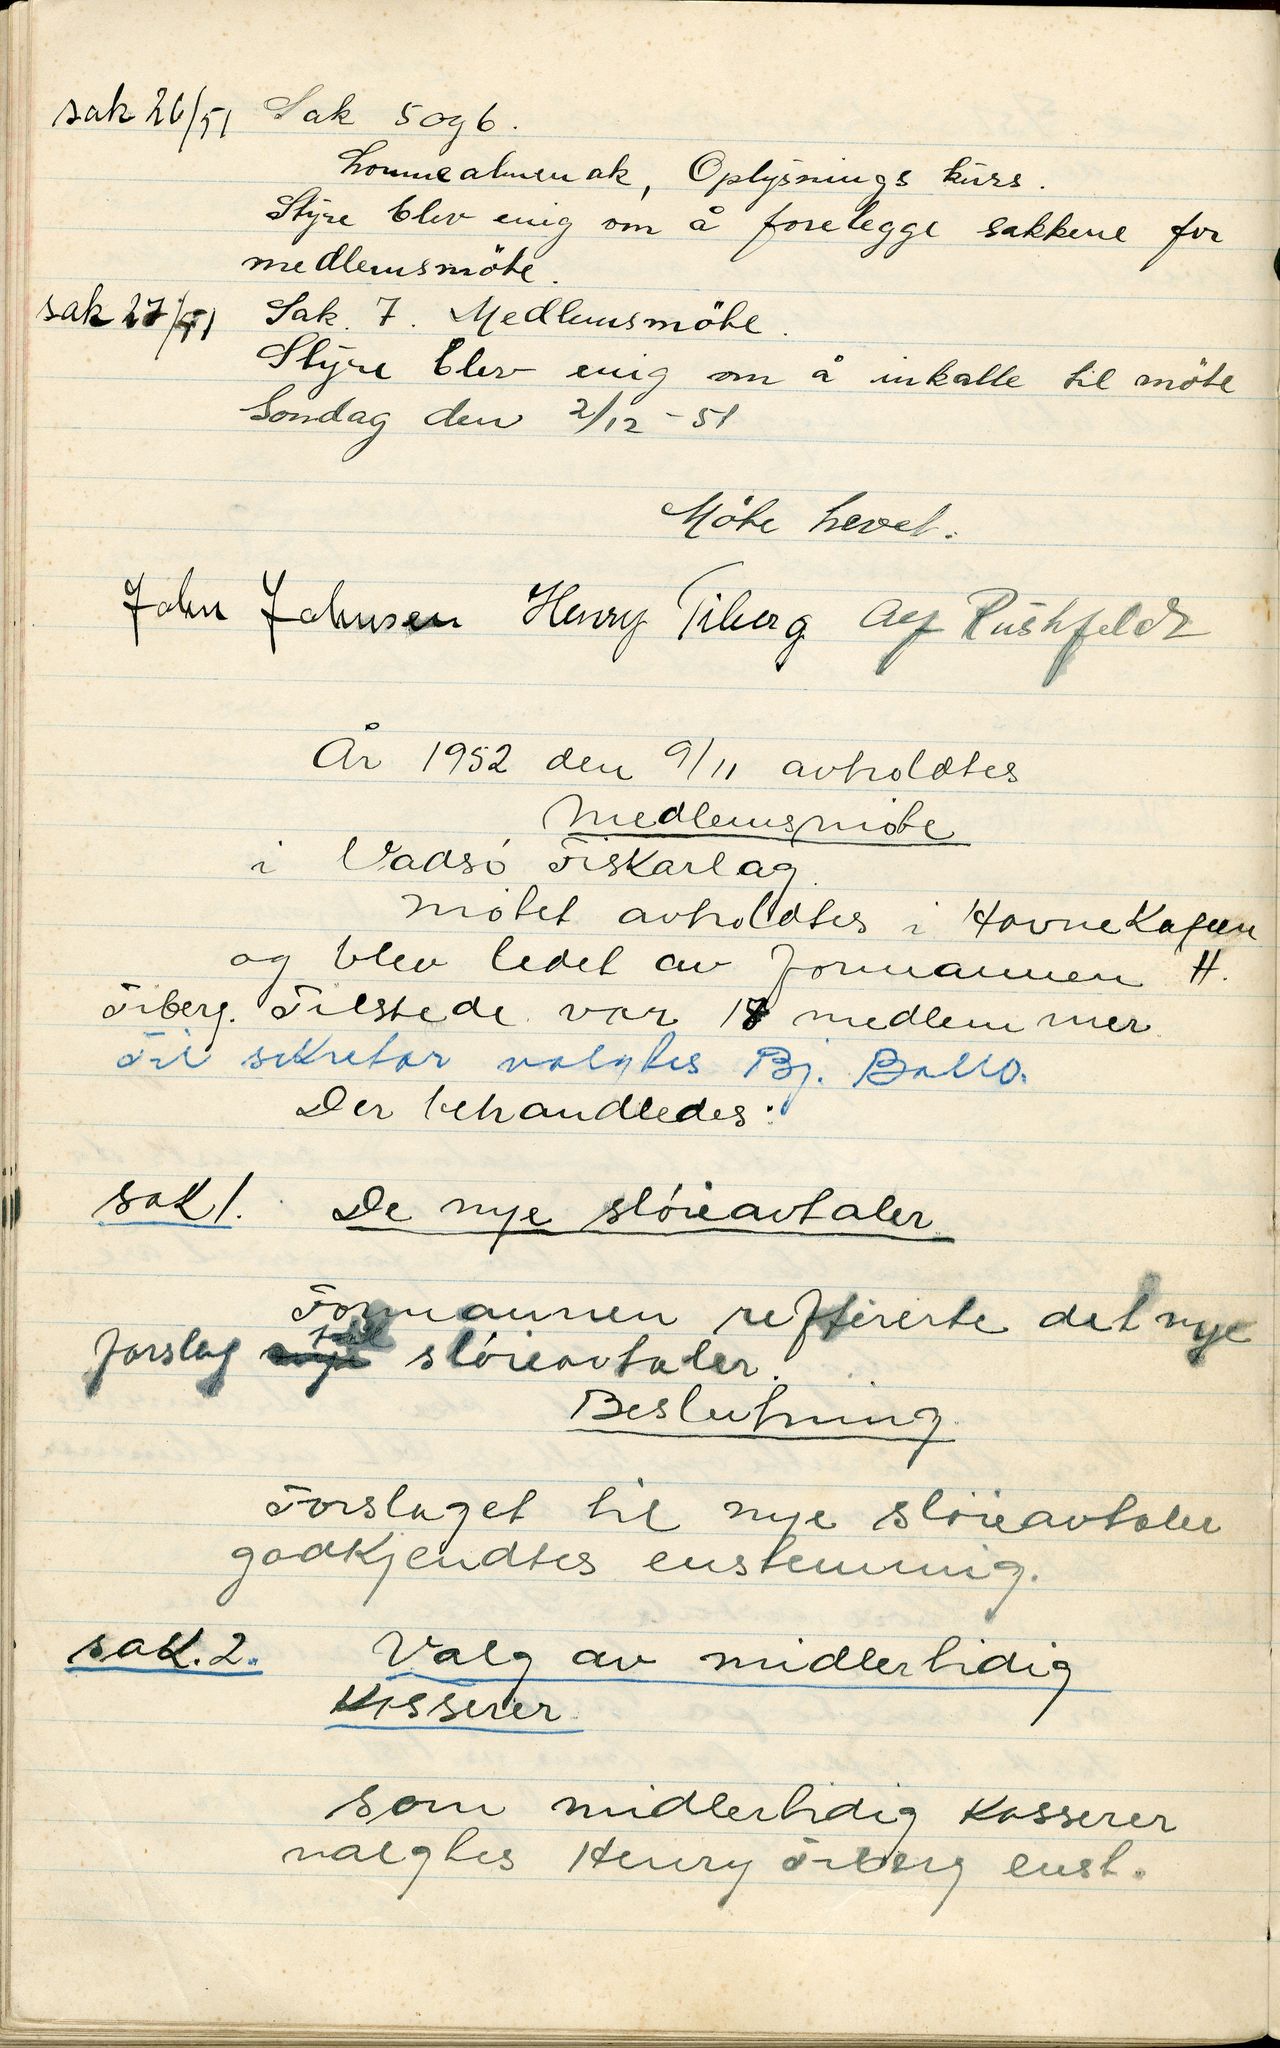 sak 26/51 Sak 5 og 6.
Lommealmenak, Oplysnings kurs.
Styre blev enig om å forelegge sakkene for
medlemsmöte.
sak 27/51 Sak. 7. Medlemsmöte.
Styre blev enig om å inkalle til möte
Sondag den 2/12 - 51
Möte hevet.
John Johnsen Henry Tiberg Alf Rushfeldt
År 1952 den 9/11 avholdtes
Medlemsmöte
i Vadsö Fiskarlag.
Mötet avholdtes i Havnekafeen
og blev ledet av formannen H.
Tiberg. Tilstede var 18 medlemmer
Til sekretær valgtes Bj. Ballo.
Der behandledes:
sak 1. De nye slöieavtaler.
Formannen reffererte det nye
forslag til slöieavtaler.
Beslutning.
Forslaget til nye slöieavtaler
godkjendtes enstemmig.
sak. 2. Valg av midlertidig
Kasserer.
Som midlertidig Kasserer
valgtes Henry Tiberg enst.